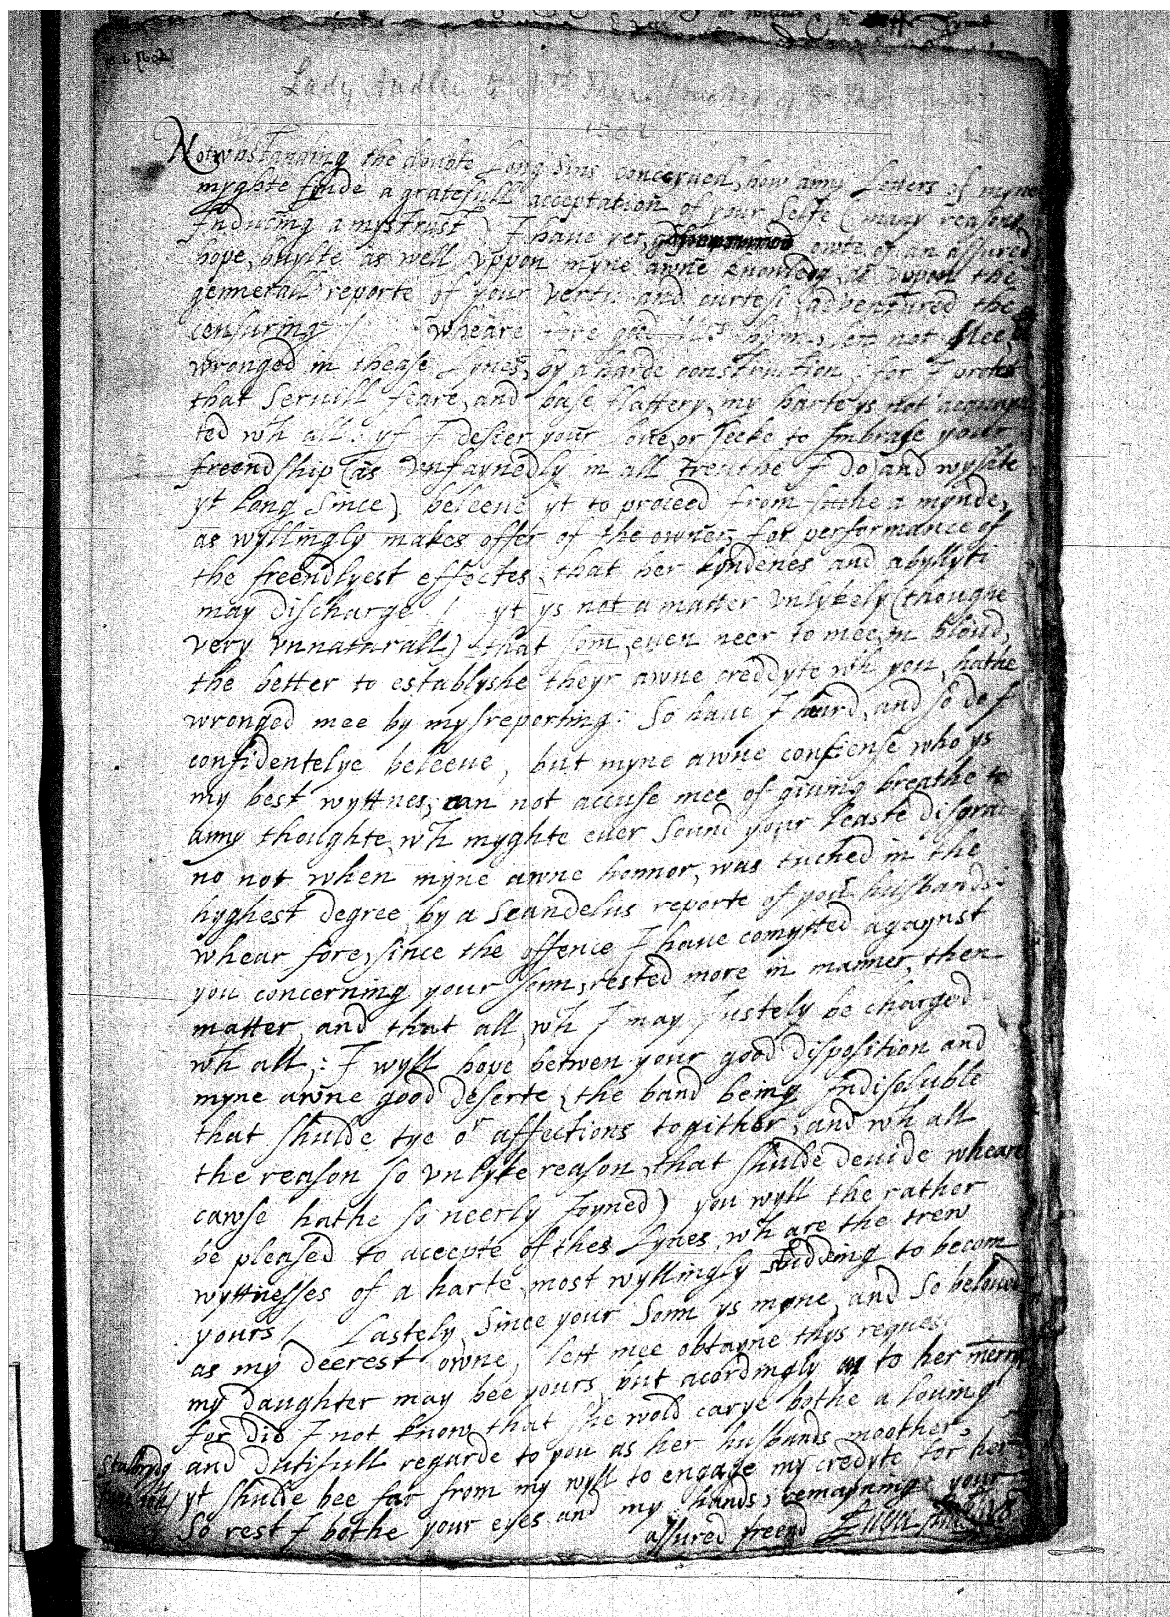 Lady Audley to Mrs
1602
Notwthstanding the doubte Long Sins conceyued, how amy Letters of myne
myghte fynde a gratefull acceptation of your Selfe (many reasons
Inducing a mystrust) I have yet, owte of an assured
hope, buylte as well vppon myne awne knowledg, as vppon the
gennerall reporte of your vertu and curtesi, adventured the
censuring / wheare fore good let not Mee bee
wronged in thease Lynes, by a harde construction: for I protest
that Servill feare, and base flattery, my harte ys not acquayn
ted wth all. yf I desier your Loue, or Seeke to Imbrase your
freendship (as vnfaynedly in all treuthe I do) and wyshte
yt Long Since) beleeue yt to proceed from suche a mynde,
as wyllingly makes offer of the owner, for performance of
the freendlyest effectes, that her kyndenes and abyllyti
may discharge / yt ys not a matter vnlykely (thoughe
very vnnaturall) that Som, euen neer to mee, in bloud,
the better to establyshe theyr awne creddyte wth you, hathe
wronged mee by mysreporting: So haue I hard, and so do I
confidentelye beleeue, but myne awne consiense who ys
my best wyttnes, can not accuse mee of giuing breathe to
amy thoughte, wth myghte euer Sound your Leaste disgrace
no not when myne awne honnor, was tuched in the
hyghest degree, by a Scandelus reporte of your husbands:
whear fore, since the offence I haue comytted agaynst
you concerning your Sonn, rested more in manner, then
matter, and that all, wth I may Iustely be charged
wth all,: I wyll hope betwen your good disposition and
myne awne good deserte (the band being Indisoluble
that shulde tye or affections togither, and wth all
the reason So vnlyke reason, that shulde deuide wheare
cawse hathe so neerly Joyned) you wyll the rather
be pleased to accepte of thes Lynes, wth are the trew
wyttnesses of a harte, most wyllingly to becom
yours / Lastely, Since your Sonn ys myne, and So beloued
as my deerest owne, lett mee obtayne thys request
my daughter may bee yours, but acordingly to her merryt
for did I not know that She wold carye bothe a louing
and dutifull regarde to you as her husbands moother,
Stalbrydg yt shulde bee far from my wyll to engage my credyte for her
So rest I bothe your eyes and my hands, remayning your
assured freend